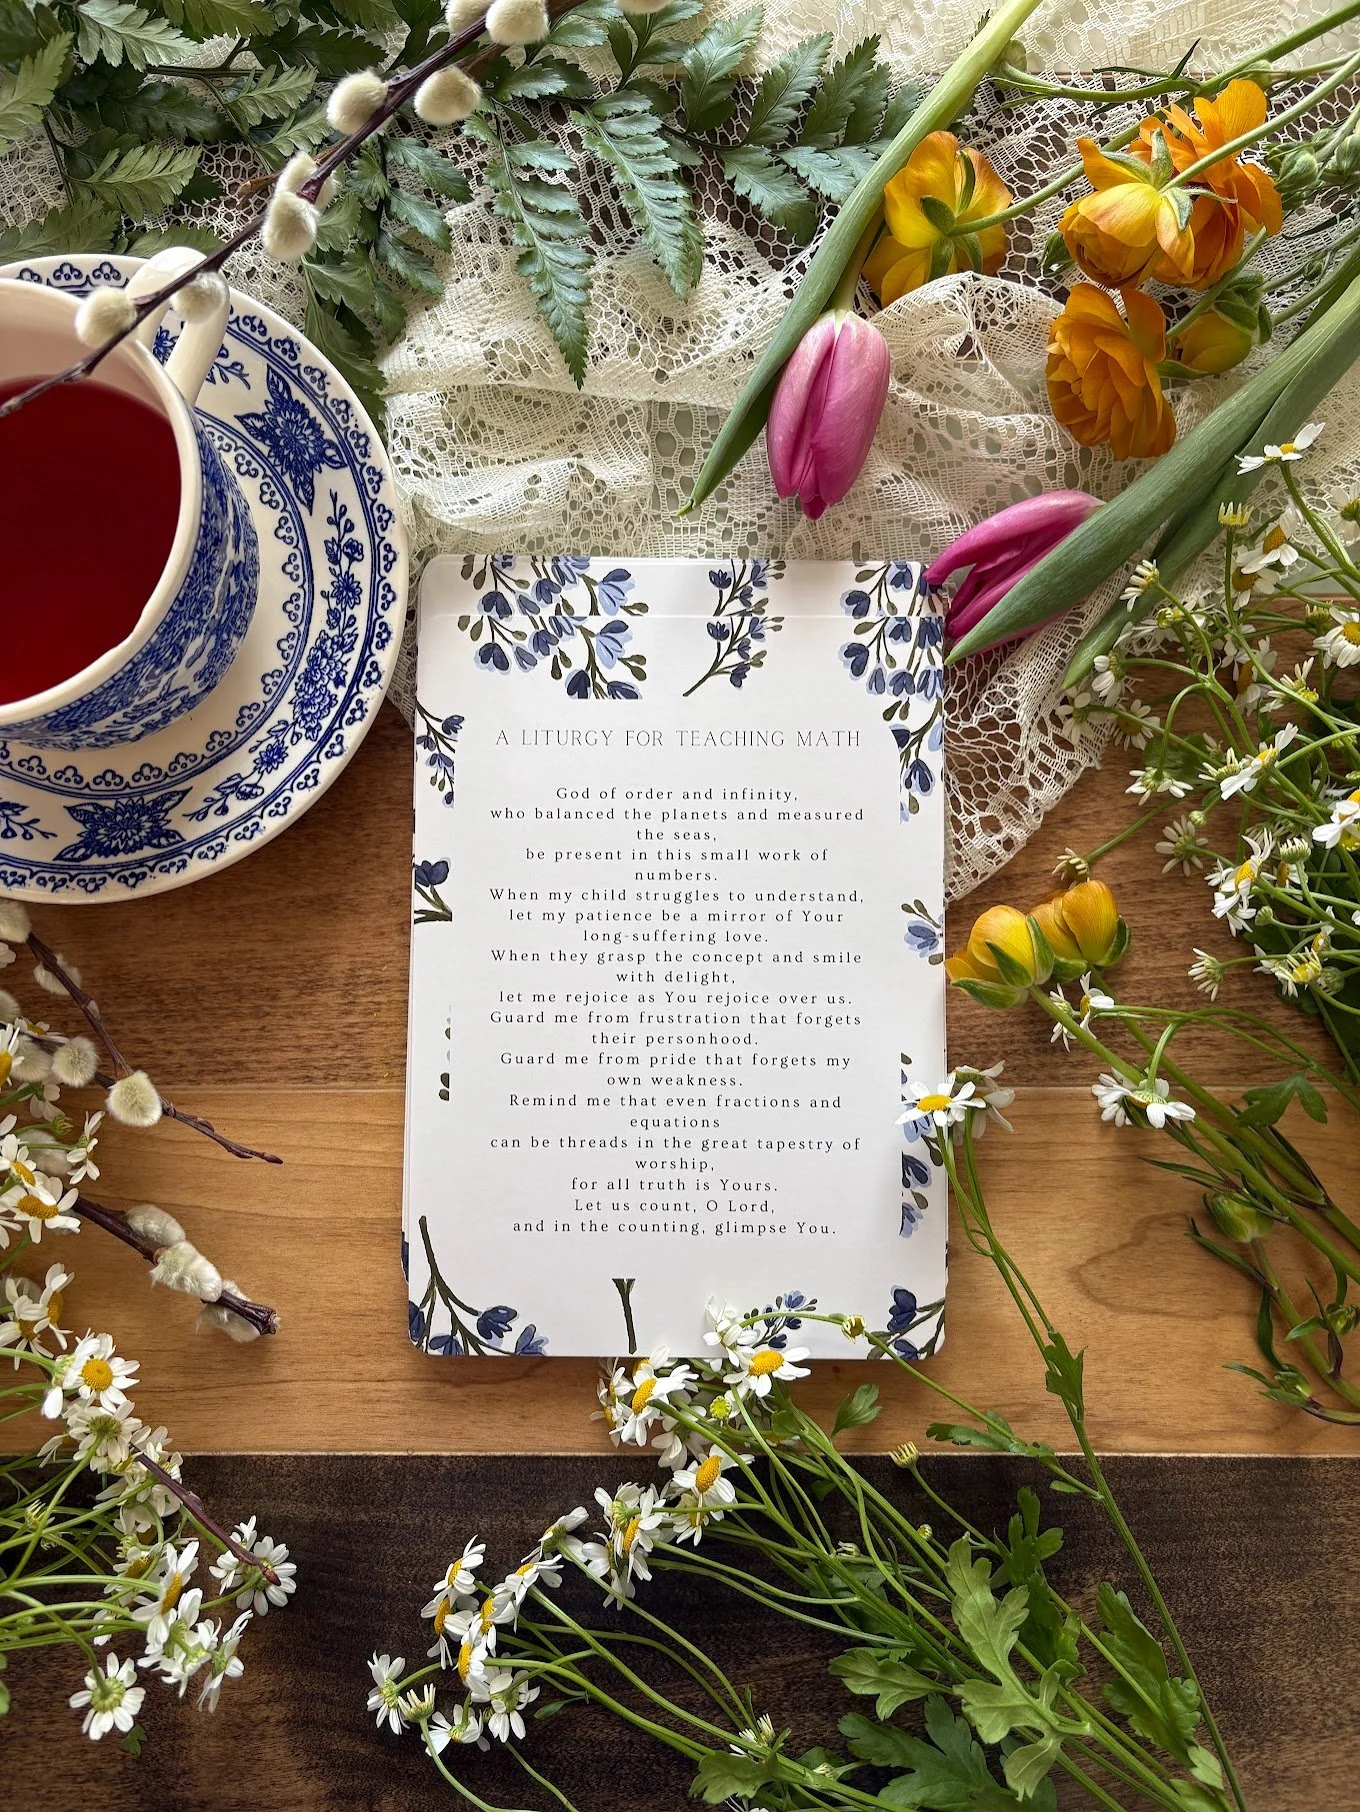 A LITURGY FOR TEACHING MATH
God of order and infinity,
who balanced the planets and measured
the seas,
be present in this small work of
numbers.
When my child struggles to understand,
let my patience be a mirror of Your
long-suffering love.
When they grasp the concept and smile
with delight,
let me rejoice as You rejoice over us.
Guard me from frustration that forgets
their personhood.
Guard me from pride that forgets my
own weakness.
Remind me that even fractions and
equations
can be threads in the great tapestry of
worship,
for all truth is Yours.
Let us count, O Lord,
and in the counting, glimpse You.